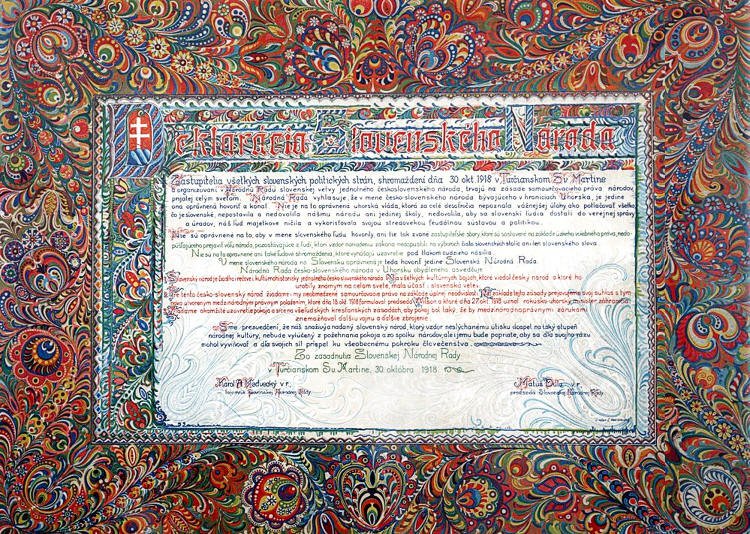 Deklarácia Slovenského Národa
Zástupitelia všetkých slovenských politických strán, shromaždení dňa 30. okt. 1918 v Turčianskom Sv. Martine
a organizovaní v Národnú Radu slovenskej vetvy jednotného československého národa, trvajú na zásade samourčovacieho práva národov,
prijatej celým svetom. Národná Rada vyhlasuje, že v mene česko-slovenského národa bývajúceho v hraniciach Uhorska, je jedine
ona oprávnená hovoriť a konať. Nie je na to oprávnená uhorská vláda, ktorá za celé desaťročia nepoznala vážnejšej úlohy ako potláčať všetko
čo je slovenské, nepostavila a nedovolila nášmu národu ani jednej školy, nedovolila, aby sa slovenskí ľudia dostali do verejnej správy
a úradov, náš ľud majetkove ničila a vykorisťovala svojou stredovekou feudálnou sústavou a politikou.
Nie sú oprávnené na to, aby v mene slovenského ľudu hovorily, ani tie tak zvané zastupiteľské sbory, ktoré sú
pripúšťajúceho prejaviť vôľu národa, pozostávajúce z ľudí, ktorí vzdor nariadeniu zákona nezapustili na výboroch čisto slovenských stolíc ani len slovenského slova.
Nie sú na to oprávnené ani také ľudové shromaždenia, ktoré vynášajú uzavretie pod tlakom cudzieho násilia.
V mene slovenského národa na Slovensku oprávnená je teda hovoriť jedine Slovenská Národná Rada.
Národná Rada česko-slovenského národa v Uhorsku obydleného osvedčuje:
Slovenský národ je čiastka i rečove i kultúrno-historicky jednotného česko-slovenského národa. Na všetkých kultúrnych bojoch, ktoré viedol český národ a ktoré ho
urobily známym na celom svete, mala účasť i slovenská vetev.
Pre tento česko-slovenský národ žiadame i my neobmedzené samourčovacie právo na základe úplnej neodvislosti. Na základe tejto zásady prejavujeme svoj súhlas s tým
novoutvoreným medzinárodným právnym položením, ktoré dňa 18. okt. 1918 formuloval predseda Wilson a ktoré dňa 27. okt. 1918 uznal rakúsko-uhorský minister zahraničia.
Žiadame okamžité uzavretie pokoja a sice na všeľudských kresťanských zásadách, aby pokoj bol taký, že by medzinárodnoprávnymi zárukami
znemožňoval ďalšiu vojnu a ďalšie zbrojenie.
Sme presvedčení, že náš snaživý a nadaný slovenský národ, ktorý vzdor neslýchanému útisku dospel na taký stupeň
národnej kultúry, nebude vylúčený z požehnania pokoja a zo spolku národov, ale i jemu bude popriate, aby sa dľa svojho rázu
mohol vyvinovať a dľa svojich síl prispel ku všeobecnému pokroku človečenstva.
Zo zasadnutia Slovenskej Národnej Rady
v Turčianskom Sv. Martine, 30. októbra 1918.
Karol A. Medvecký v.r.,
tajomník Slovenskej Národnej Rady
Matúš Dula v.r.
predseda Slovenskej Národnej Rady